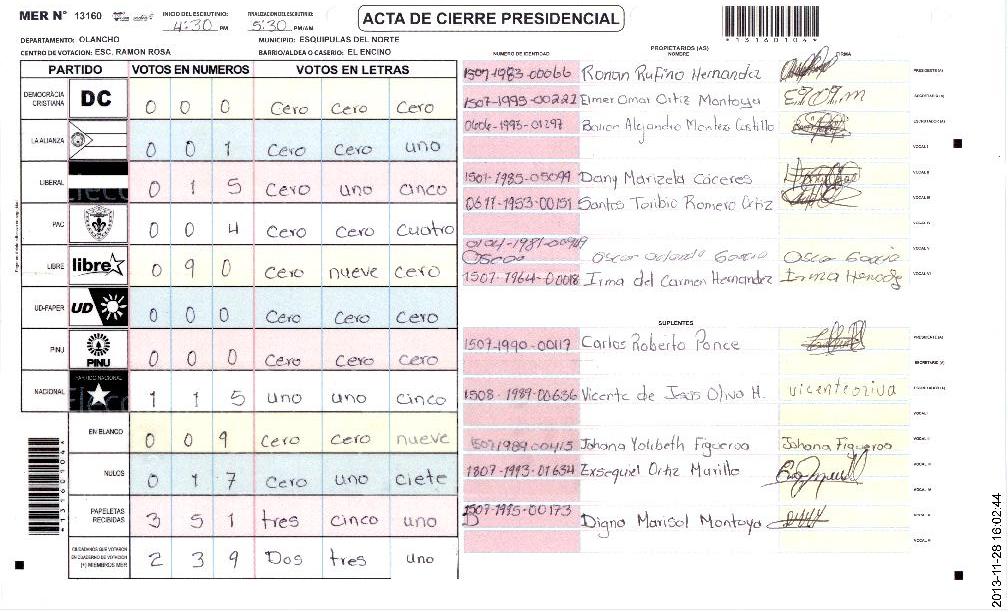 MER Nº 13160
INICIO DEL ESCRUTINIO: 4:30 PM
FINALIZACION DEL ESCRUTINIO: 5:30 PM/AM
ACTA DE CIERRE PRESIDENCIAL
*1316010 4*
DEPARTAMENTO: OLANCHO
MUNICIPIO: ESQUIPULAS DEL NORTE
CENTRO DE VOTACION: ESC. RAMON ROSA
BARRIO/ALDEA O CASERIO: EL ENCINO
PARTIDO VOTOS EN NUMEROS VOTOS EN LETRAS
DEMOCRACIA CRISTIANA DC 0 0 0 Cero Cero Cero
LA ALIANZA 0 0 1 Cero Cero uno
LIBERAL 0 1 5 Cero uno cinco
PAC 0 0 4 Cero Cero cuatro
LIBRE libre 0 9 0 Cero nueve cero
UD-FAPER UD 0 0 0 Cero Cero Cero
PINU PINU 0 0 0 Cero Cero cero
NACIONAL PARTIDO NACIONAL 1 1 5 uno uno cinco
EN BLANCO 0 0 9 Cero Cero nueve
NULOS 0 1 7 Cero uno ciete
PAPELETAS RECIBIDAS 3 5 1 tres cinco uno
CIUDADANOS QUE VOTARON EN CUADERNO DE VOTACION (+) MIEMBROS MER 2 3 9 Dos tres uno
PROPIETARIOS (AS)
NUMERO DE IDENTIDAD NOMBRE FIRMA
1507-1983-00066 Ronan Rufino Hernandez PRESIDENTE (A)
1507-1995-00221 Elmer Omar Ortiz Montoya SECRETARIO (A)
0606-1993-01297 Alejandro Montes Castillo ESCRUTADOR (A)
VOCAL I
1501-1985-05099 Dany Marizela Cáceres VOCAL II
0611-1953-00151 Santos Toribio Romero Ortiz VOCAL III
VOCAL IV
Oscar Orlando Garcia Oscar Garcia VOCAL V
1507-1964-00018 Irma del Carmen Hernandez Irma VOCAL VI
SUPLENTES
1507-1990-00117 Carlos Roberto Ponce PRESIDENTE (A)
SECRETARIO (A)
1508-1989-00636 Vicente de Jesús Oliva H. vicente oliva ESCRUTADOR (A)
VOCAL I
1507-1989-00415 Johana Yolibeth Figueroa Johana Figueroa VOCAL II
1807-1993-01634 Exsequiel Ortiz Murillo VOCAL III
VOCAL IV
1507-1995-00173 Digna Marisol Montoya VOCAL V
VOCAL VI
2013-11-28 16:02:44